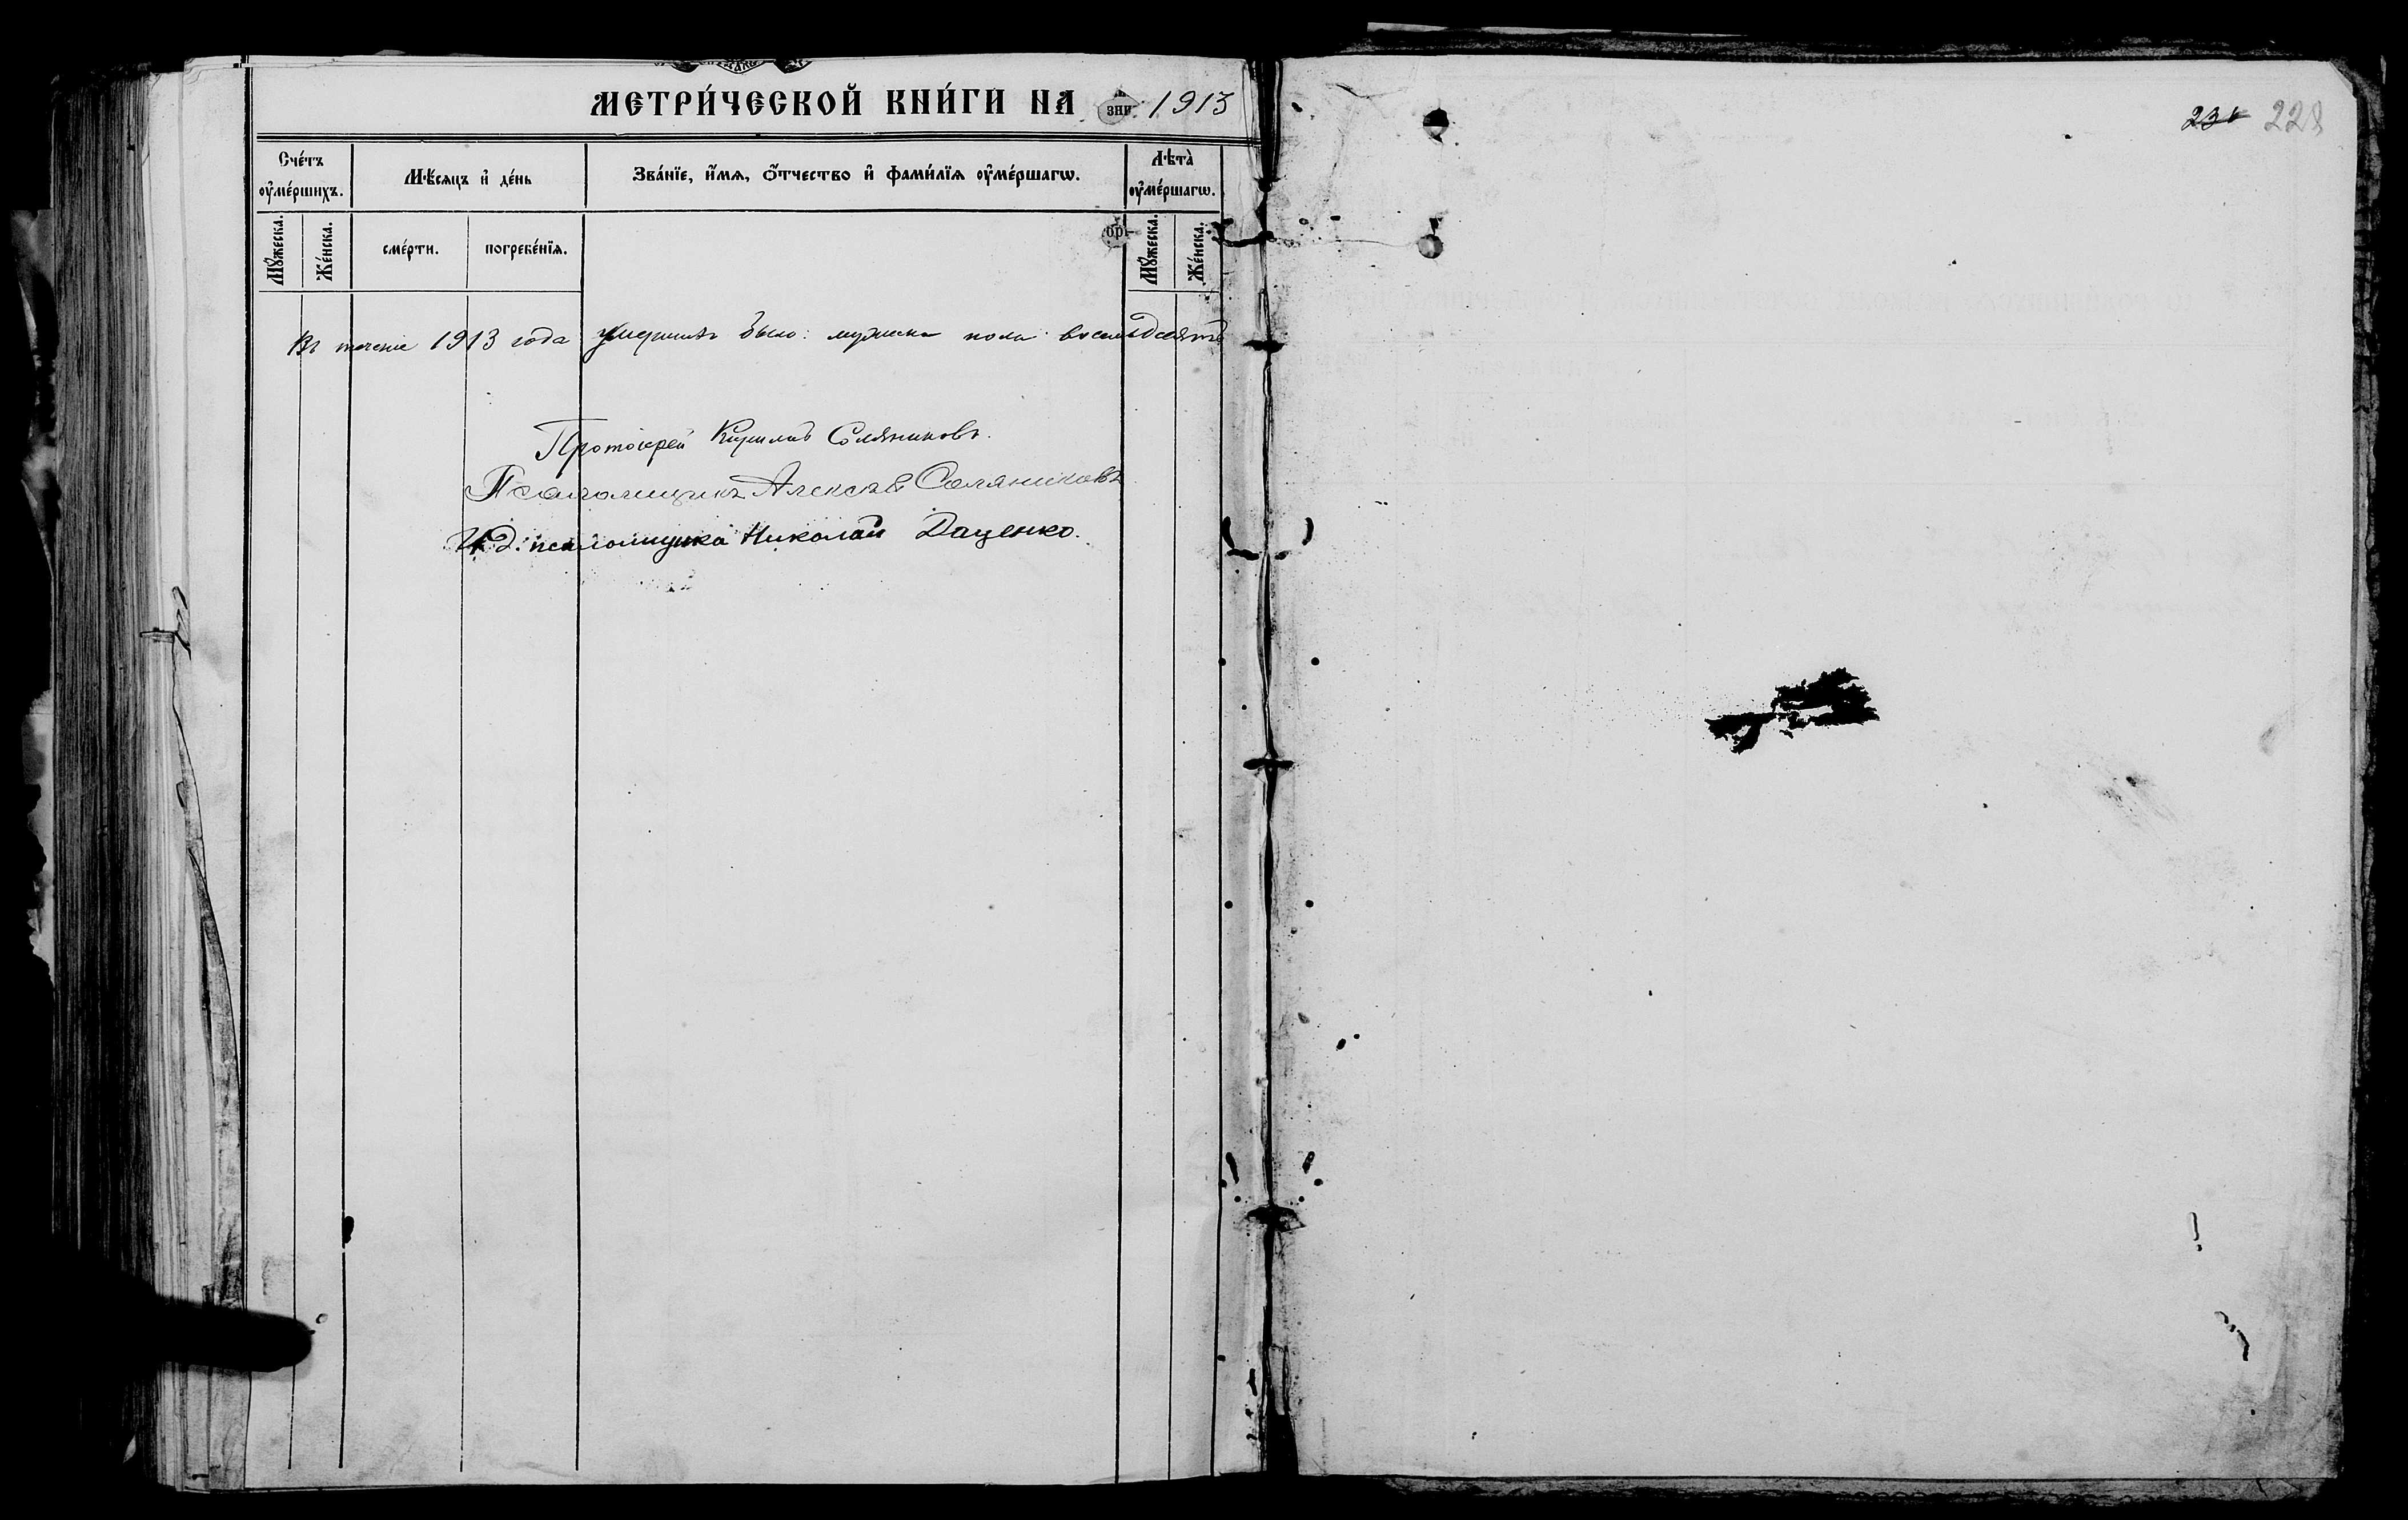 МЕТРИ́ЧЕСКОЙ КНИ́ГИ НА 1913
Сче́тъ ᲂу҆ме́ршихъ.
Мѣ́сяцъ и҆ де́нь
Зва́нїе, и҆́мя, ѻ҆́тчество и҆ фами́лїя ᲂу҆ме́ршагѡ.
Лѣта̀ ᲂу҆ме́ршагѡ.
Мꙋ́жеска.
Же́нска.
сме́рти.
погребе́нїя.
Мꙋ́жеска.
Же́нска.
Въ течение 1913 года умершихъ было: мужска пола восемьдесятъ
Протоіерей Кириллъ Соляниковъ.
Псаломщикъ Алексѣй Соляниковъ
И. д. псаломщика Николай Даценко.
231 228